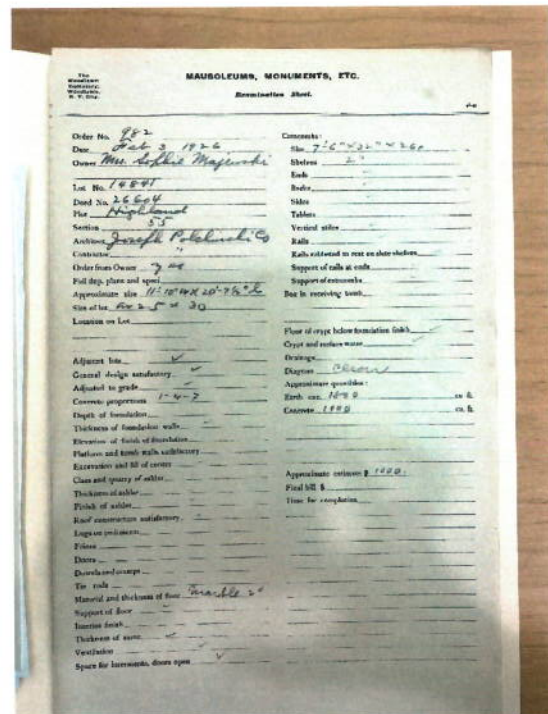 The
Woodlawn
Cemetery,
Woodlawn,
N. Y. City.
MAUSOLEUMS, MONUMENTS, ETC.
Examination Sheet.
Order No. 982
Date Feb 3 1926
Owner Mrs. Sophie Majewski
Lot No. 14841
Deed No. 26604
Plot Highland
Section 55
Architect Joseph Polchinski Co
Contractor "
Order from Owner yes
Full dep. plans and speci
Approximate size
Size of lot 25 x 30
Location on Lot
Adjacent lots ✓
General design satisfactory ✓
Adjusted to grade ✓
Concrete proportions
Depth of foundation
Thickness of foundation walls
Elevation of finish of foundation
Platform and tomb walls satisfactory
Excavation and fill of center
Class and quarry of ashlar
Thickness of ashlar
Finish of ashlar
Roof construction satisfactory
Lugs on pediments
Frieze
Doors
Dowels and cramps
Tie rods
Material and thickness of floor marble 2"
Support of floor
Interior finish
Thickness of same ✓
Ventilation ✓
Space for interments, doors open ✓
Catacombs:
Size 7'-6" x 32" x 26"
Shelves 2"
Ends
Backs
Sides
Tablets
Vertical stiles
Rails
Rails rabbeted to rest on slate shelves
Support of rails at ends
Support of catacombs
Box in receiving tomb
Floor of crypt below foundation finish
Crypt and surface water
Drainage
Diagram
Approximate quantities:
Earth exc. cu ft.
Concrete cu. ft.
Approximate estimate $ 1000.
Final bill $
Time for completion